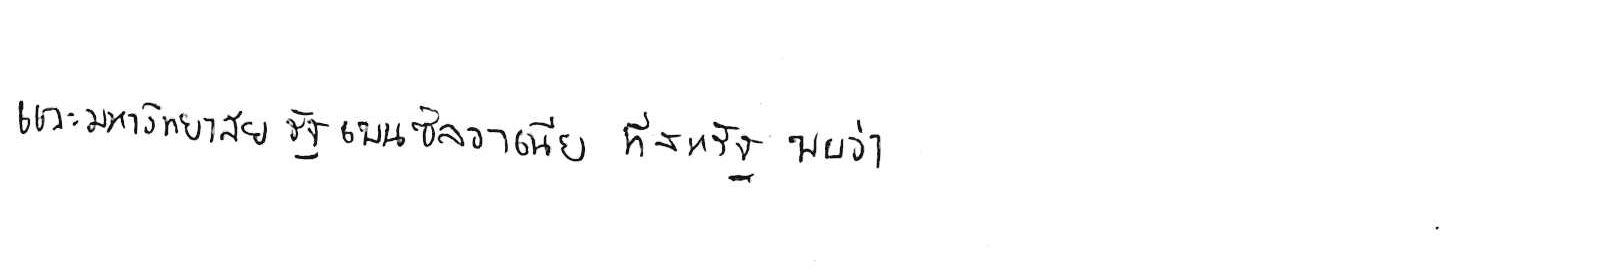 และมหาวิทยาลัย รัฐ เพนซิลวาเนีย ที่สหรัฐ พบว่า